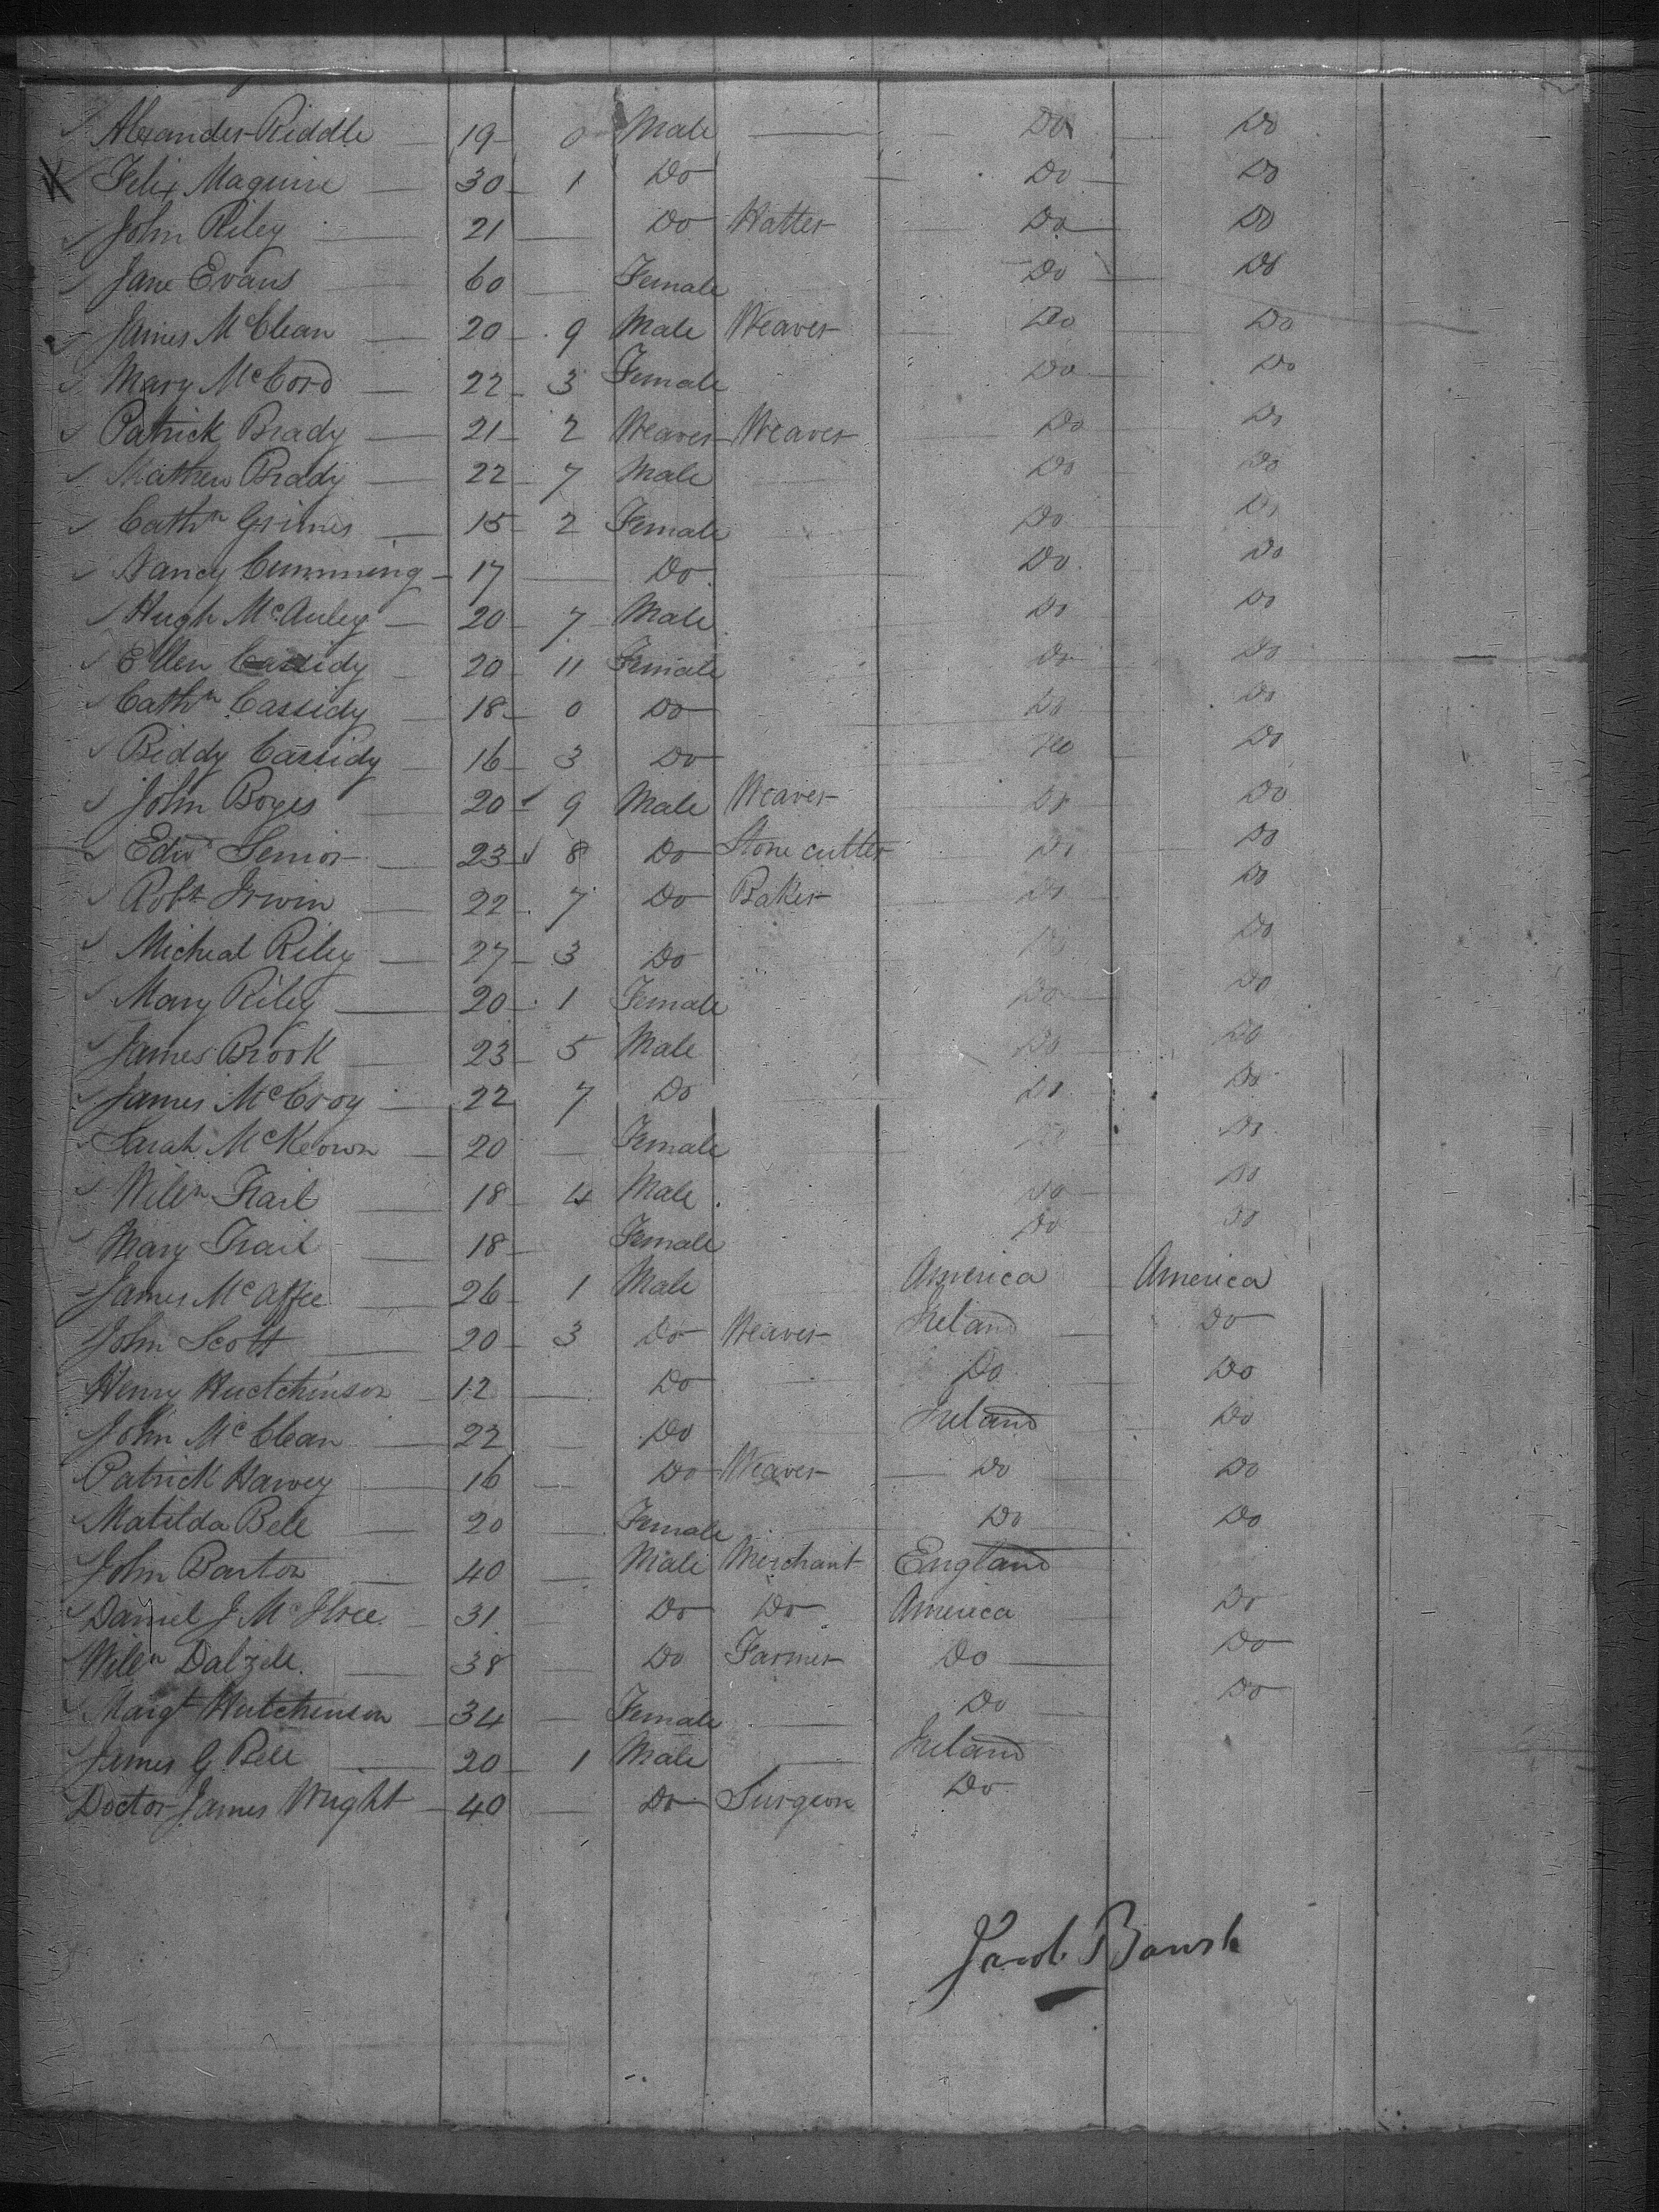 Alexander Riddle 19 0 Male Do Do
Felix Maguire 30 1 Do Do Do
John Riley 21 Do Hatter Do Do
Jane Evans 60 Female Do Do
James McClean 20 9 Male Weaver Do Do
Mary McCord 22 3 Female Do Do
Patrick Brady 21 2 Weaver Weaver Do Do
Mathew Brady 22 7 Male Do Do
Cathn Grimes 15 2 Female Do Do
Nancy Cumming 17 Do Do Do
Hugh McAuley 20 7 Male Do Do
Ellen Cassidy 20 11 Female Do Do
Cathn Cassidy 18 0 Do Do Do
Biddy Cassidy 16 3 Do Do Do
John Boyes 20 9 Male Weaver Do Do
Edwd Senior 23 8 Do Stone cutter Do Do
Robt Irwin 22 7 Do Baker Do Do
Micheal Riley 27 3 Do Do Do
Mary Riley 20 1 Female Do Do
James Brook 23 5 Male Do Do
James McCroy 22 7 Do Do Do
Sarah McKeown 20 Female Do Do
Willm Trail 18 4 Male Do Do
Mary Trail 18 Female Do Do
James McAffee 26 1 Male America America
John Scott 20 3 Do Weaver Ireland Do
Henry Hutchinson 12 Do Do Do
John McClean 22 Do Ireland Do
Patrick Harvey 16 Do Weaver Do Do
Matilda Bell 20 Female Do Do
John Barton 40 Male Merchant England
Daniel J 31 Do Do America Do
Willm Dalzell 38 Do Farmer Do Do
Margt Hutchinson 34 Female Do Do
James G Bell 20 1 Male Ireland
Doctor James Wright 40 Do Surgeon Do
Jacob